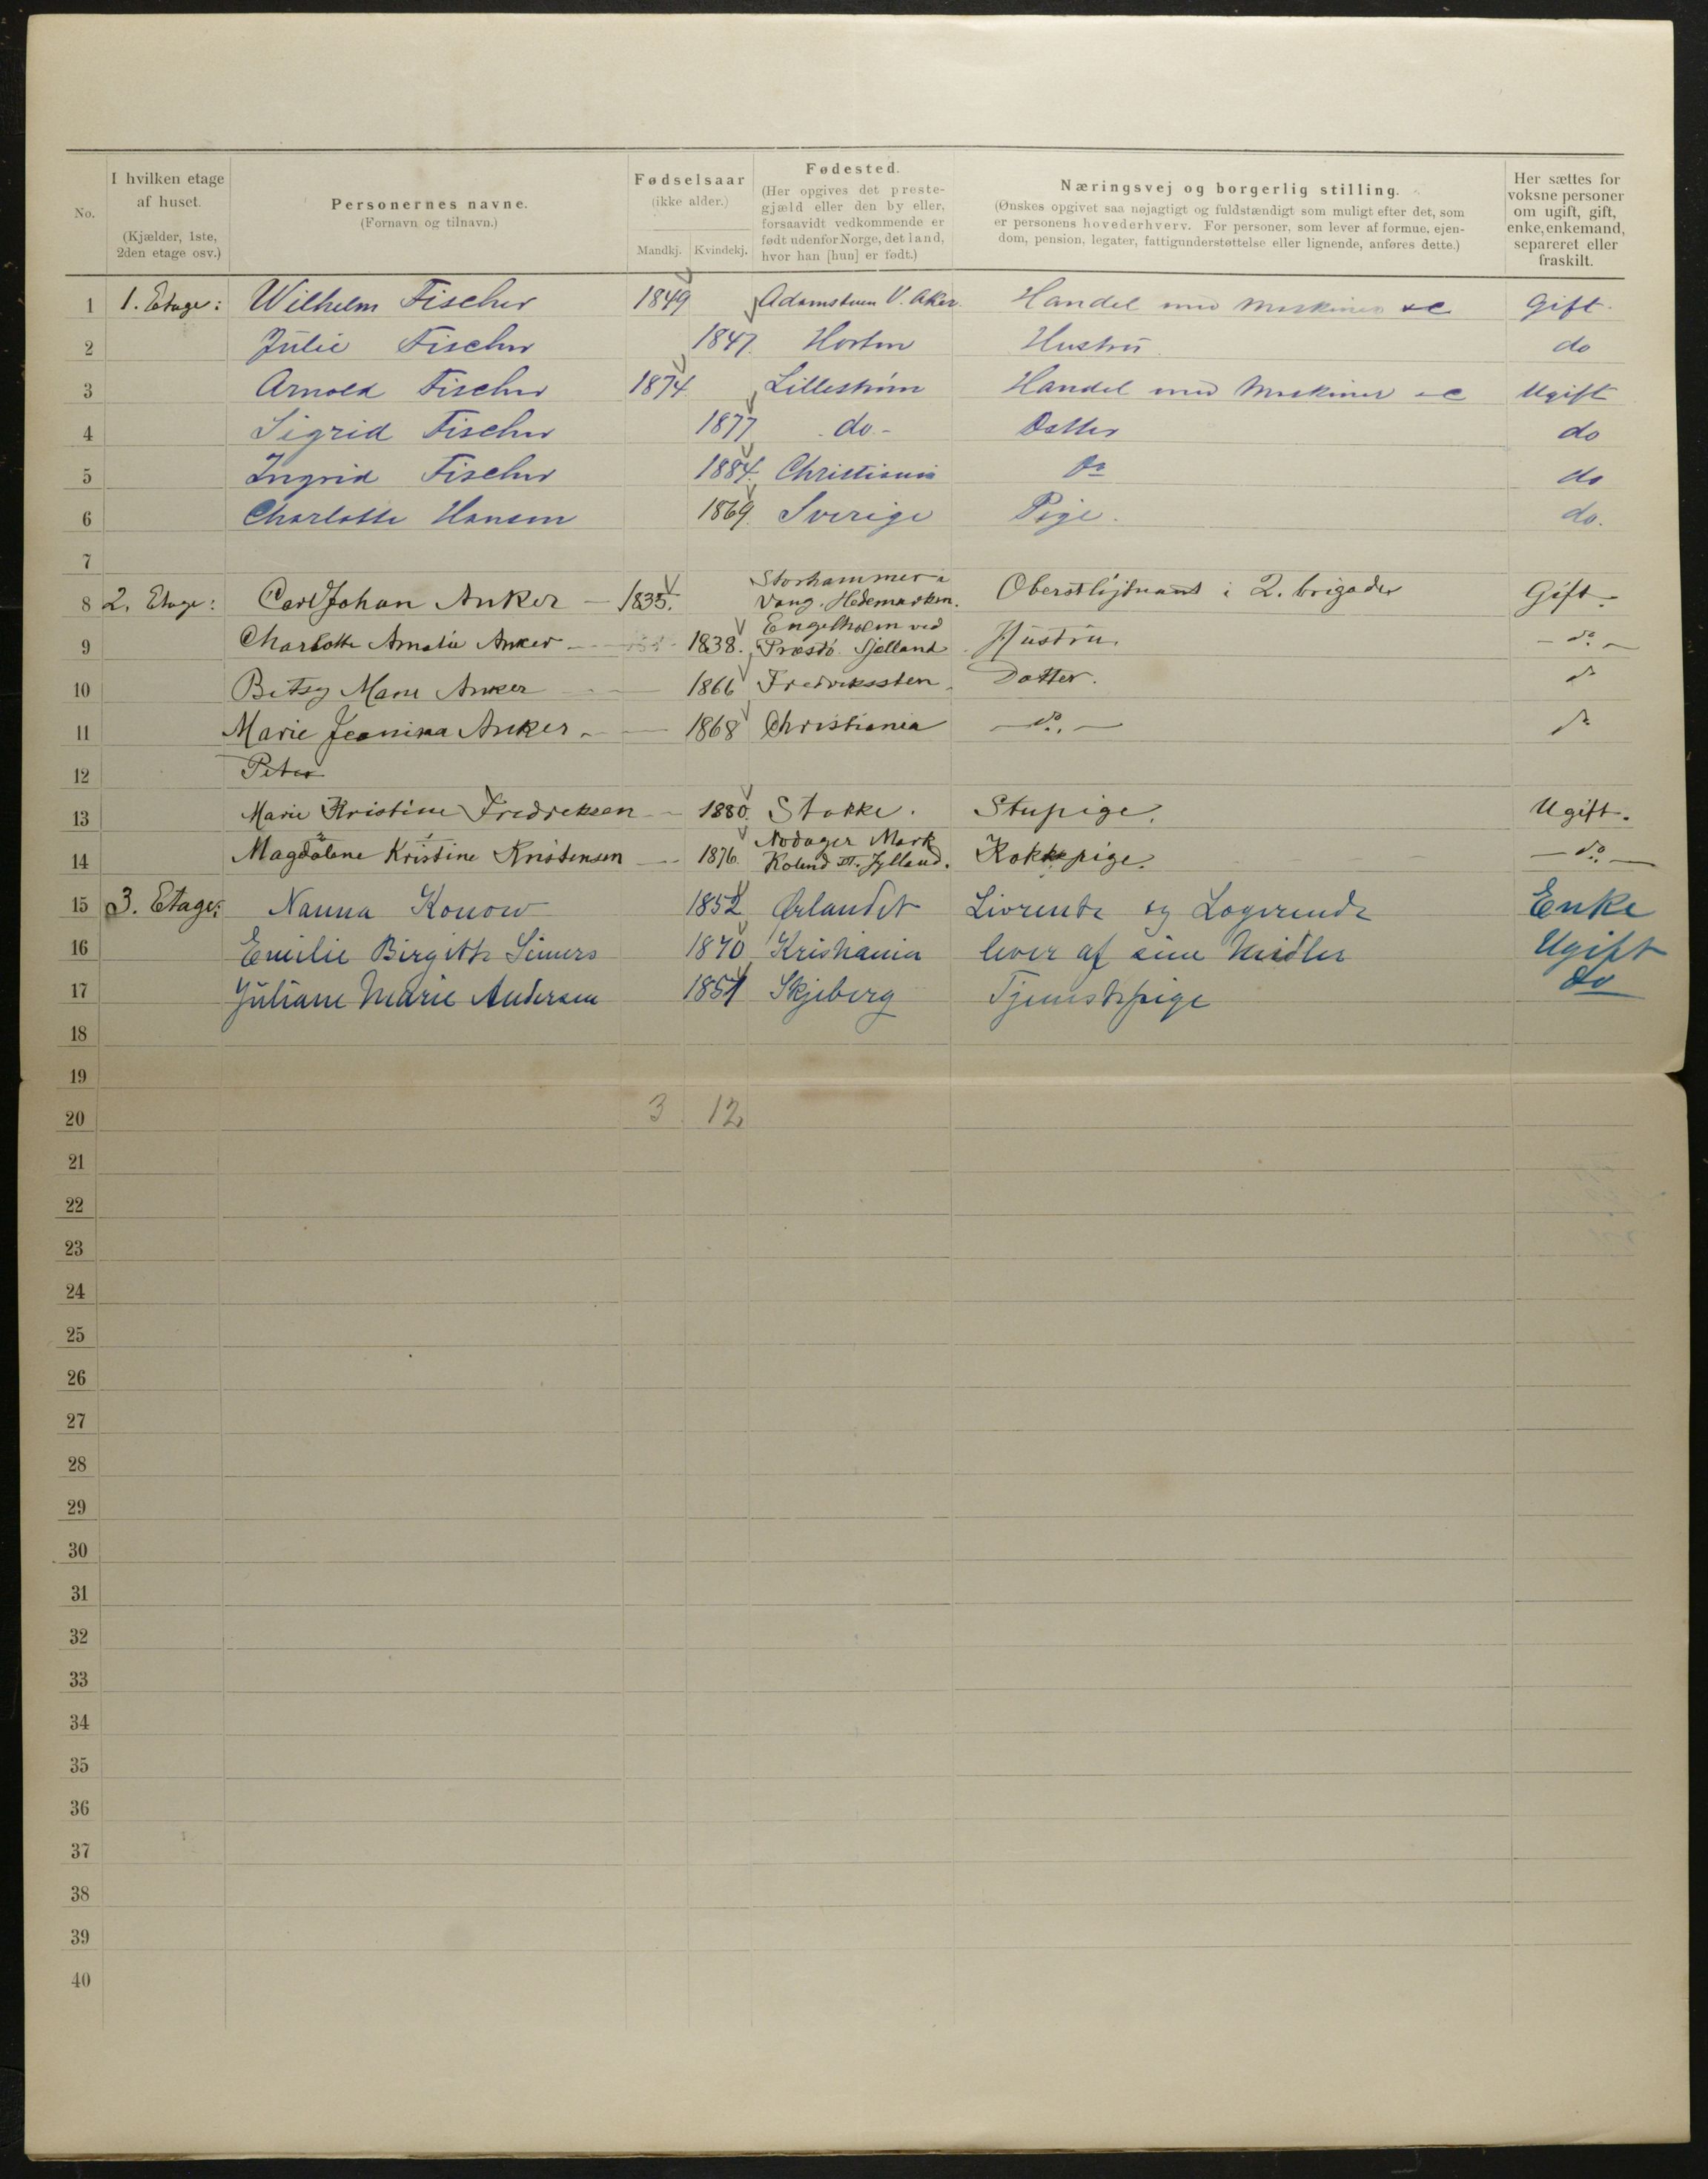 No.
I hvilken etage af huset. (Kjælder, 1ste, 2den etage osv.)
Personernes navne. (Fornavn og tilnavn.)
Fødselsaar (ikke alder.)
Mandkj. Kvindekj.
Fødested. (Her opgives det prestegjæld eller den by eller, forsaavidt vedkommende er født udenfor Norge, det land, hvor han [hun] er født.)
Næringsvej og borgerlig stilling. (Ønskes opgivet saa nøjagtigt og fuldstændigt som muligt efter det, som er personens hovederhverv. For personer, som lever af formue, ejendom, pension, legater, fattigunderstøttelse eller lignende, anføres dette.)
Her sættes for voksne personer om ugift, gift, enke, enkemand, separeret eller fraskilt.
1 1. Etage: Wilhelm Fischer 1849 Adamstuen V. Aker Handel med Maskiner &c Gift
2 Julie Fischer 1847 Horten Hustru do
3 Arnold Fischer 1874 Lillestrøm Handel med Maskiner &c Ugift
4 Sigrid Fischer 1877 do - Datter do
5 Ingrid Fischer 1884 Christiania Do do
6 Charlotte Hansen 1869 Sverige Pige. do.
7
8 2. Etage: Carl Johan Anker 1835. Storhammer i Vang. Hedemarken. Oberstløjtnant i 2. brigade Gift.
9 Charlotte Amalie Anker 1838. Engelholm ved Præstö Sjælland Hustru. do
10 Betsy Marie Anker 1866 Fredrikssten Datter. do
11 Marie Jeanina Anker 1868 Christiania do. do
12 Peter
13 Marie Kristine Fredriksen 1880. Stokke. Stupige. Ugift.
14 Magdalene Kristine Kristensen 1876. Nødager Mark Kolind St. Jylland. Kokkepige. do
15 3. Etage: Nanna Konow 1852 Ørlandet Livrente og Logerende Enke
16 Emilie Birgitte Siewers 1870 Kristiania lever af sine Midler Ugift
17 Juliane Marie Andersen 1851 Skjeberg Tjenestepige do
18
19
20 3 12
21
22
23
24
25
26
27
28
29
30
31
32
33
34
35
36
37
38
39
40